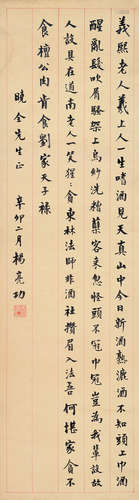 義熙老人羲上人一生嗜酒見天真山中今日新酒熟漉酒不知頭上巾
醒亂髮吹眉騷架上烏紗洗糟蘖客來忽怪頭不冠巾冠豈為我輩設故
人設具在道南老人一笑猩猩貪東林法師非酒社攢眉入法吾何堪家貪不
食檀公肉肯食劉家天子祿
曉全先生正
辛卯二月楊亮功